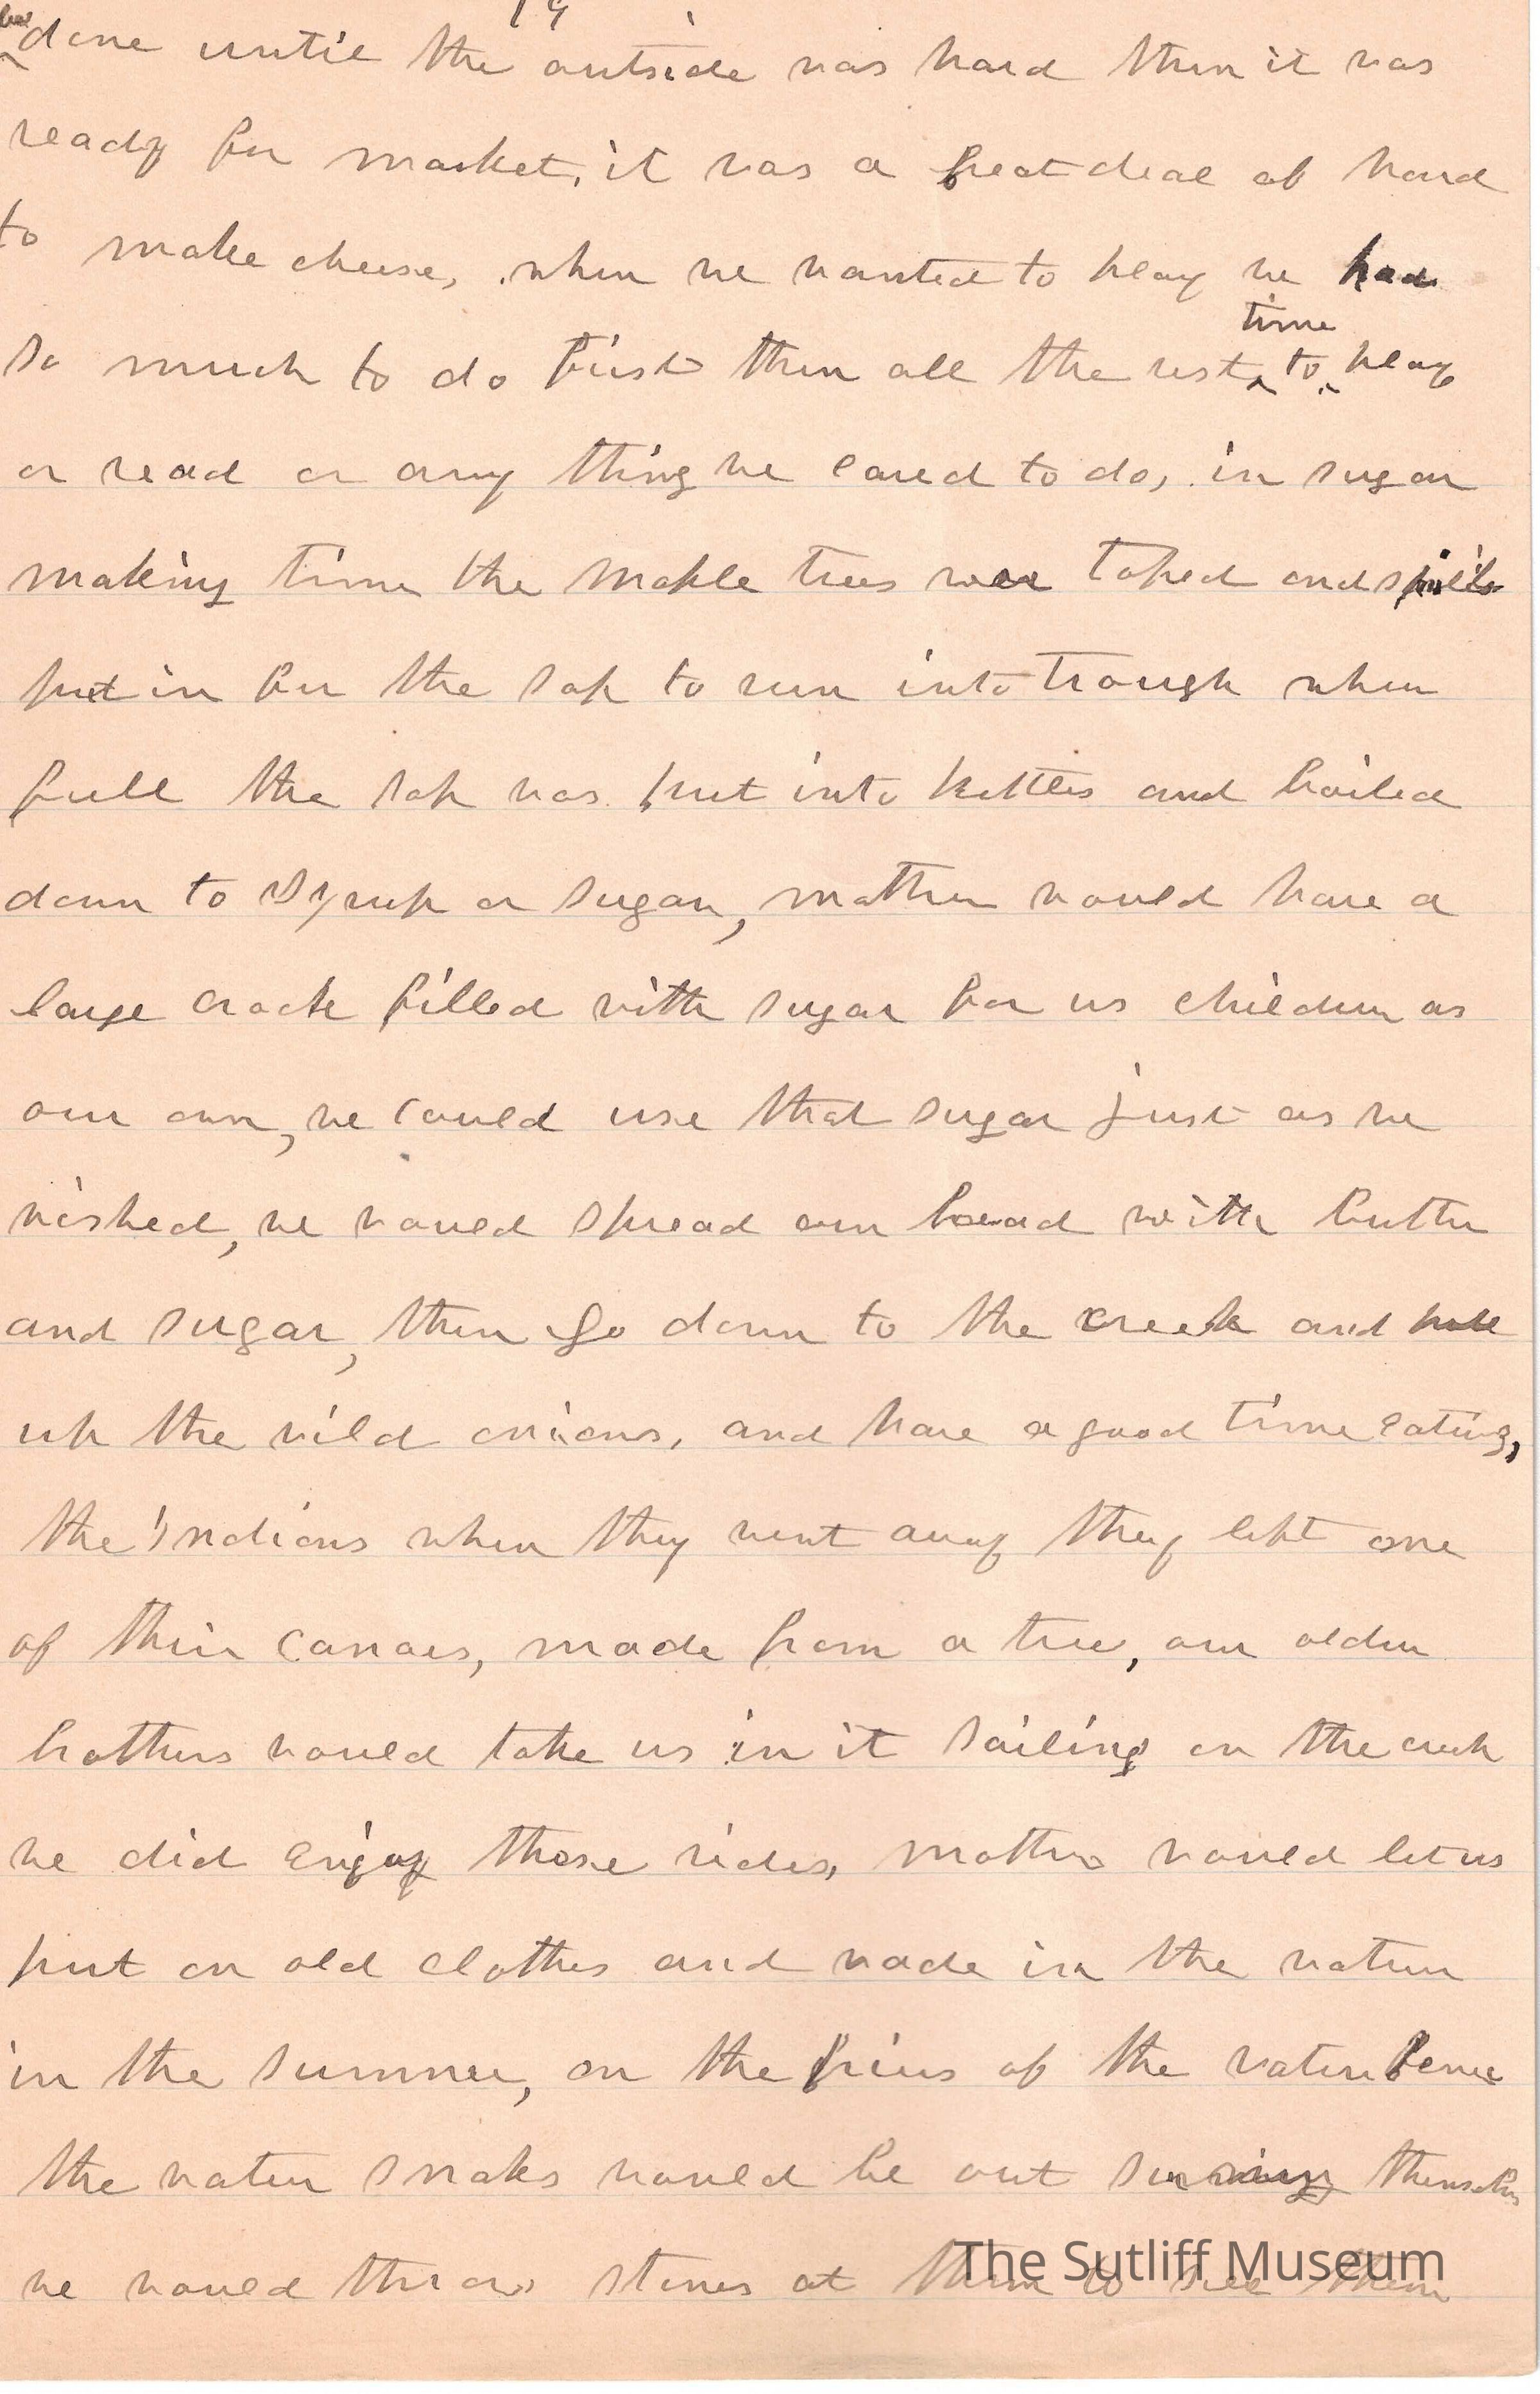 19
be done until the outside was hard then it was
ready for market, it was a great deal of hard
to make cheese, when we wanted to play we had
so much to do first then all the rest time to play
or read or any thing we cared to do, in sugar
making time the maple trees were taped and spiles
put in for the sap to run into trough when
full the sap was put into kettles and boiled
down to syrup or sugar, mother would have a
large crock filled with sugar for us children as
our own, we could use that sugar just as we
wished, we would spread our bread with butter
and sugar, then go down to the creek and pull
up the wild onions, and have a good time eating,
the Indians when they went away they left one
of their canoes, made from a tree, our older
brothers would take us in it sailing on the creek
we did enjoy those rides, mother would let us
put on old clothes and wade in the water
in the summer, on the piers of the water fence
the water snakes would be out sunning themselves
we would throw stones at them to see them
The Sutliff Museum